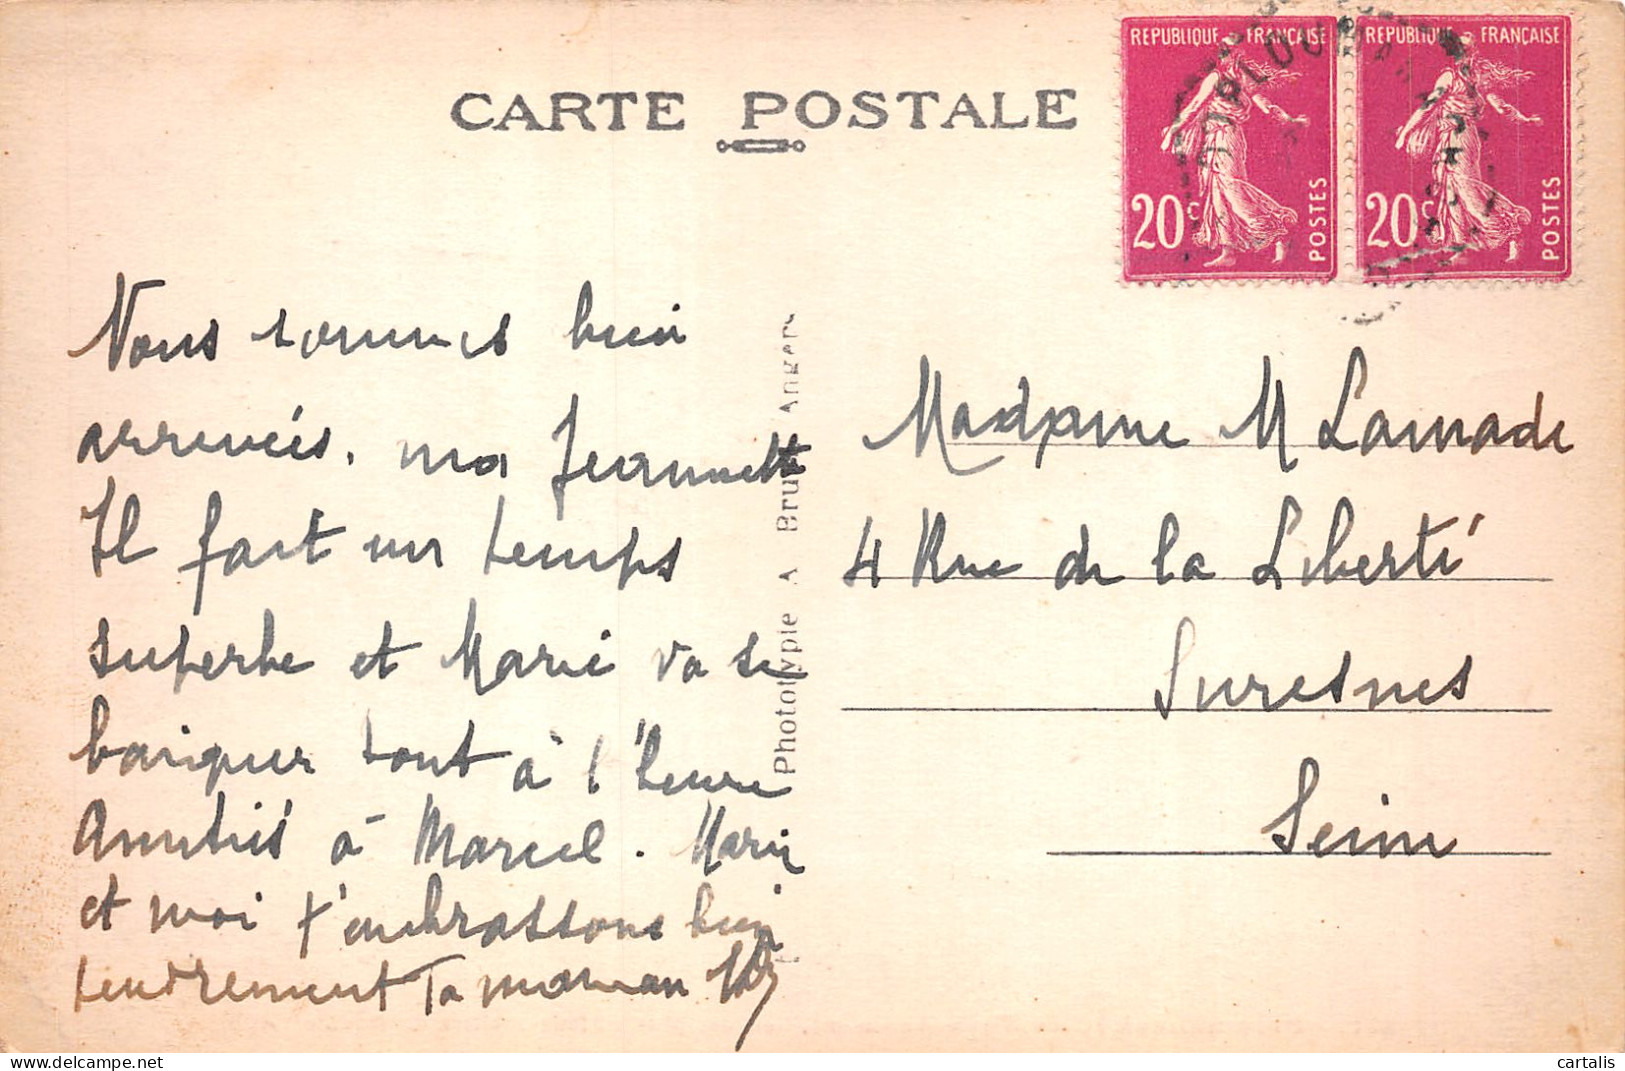 CARTE POSTALE
REPUBLIQUE FRANÇAISE
20c
POSTES
REPUBLIQUE FRANÇAISE
20c
POSTES
Nous sommes bien
arrivées, ma Jeannette
Il fait un temps
superbe et Marie va se
baigner tout à l'heure
Amitiés à Marcel. Marie
et moi t'embrassons bien
tendrement Ta maman
Phototypie A Bruel Angers
Madame M Lamade
4 Rue de la Liberté
Suresnes
Seine
cartalis